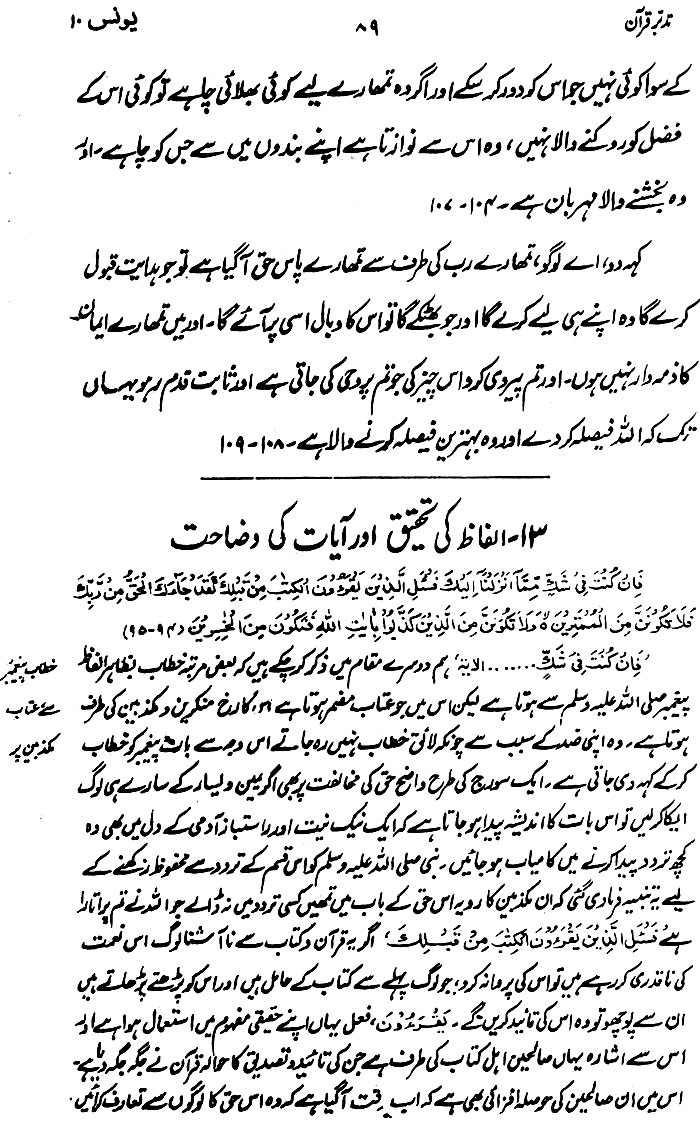 تدبر قرآن ۸۹ یونس ۱۰
کے سوا کوئی نہیں جو اس کو دور کر سکے اور اگر وہ تمھارے لیے کوئی بھلائی چاہے تو کوئی اس کے
فضل کو روکنے والا نہیں، وہ اس سے نوازتا ہے اپنے بندوں میں سے جس کو چاہے۔ اور
وہ بخشنے والا مہربان ہے۔ ۱۰۴-۱۰۷
کہہ دو، اے لوگو، تمھارے رب کی طرف سے تمھارے پاس حق آگیا ہے تو جو ہدایت قبول
کرے گا وہ اپنے ہی لیے کرے گا اور جو بھٹکے گا تو اس کا وبال اسی پر آئے گا۔ اور میں تمھارے ایمان
کا ذمہ دار نہیں ہوں۔ اور تم پیروی کرو اس چیز کی جو تم پر وحی کی جاتی ہے اور ثابت قدم رہو یہاں
تک کہ اللہ فیصلہ کر دے اور وہ بہترین فیصلہ کرنے والا ہے۔ ۱۰۸-۱۰۹
۱۳- الفاظ کی تحقیق اور آیات کی وضاحت
فَاِنْ كُنْتَ فِیْ شَكٍّ مِّمَّآ اَنْزَلْنَآ اِلَیْكَ فَسْئَلِ الَّذِیْنَ یَقْرَءُوْنَ الْكِتٰبَ مِنْ قَبْلِكَ لَقَدْ جَآءَكَ الْحَقُّ مِنْ رَّبِّكَ
فَلَا تَكُوْنَنَّ مِنَ الْمُمْتَرِیْنَ ۙ وَلَا تَكُوْنَنَّ مِنَ الَّذِیْنَ كَذَّبُوْا بِاٰیٰتِ اللّٰهِ فَتَكُوْنَ مِنَ الْخٰسِرِیْنَ (۹۴-۹۵)
’فَاِنْ كُنْتَ فِیْ شَكٍّ ...... الاٰیۃ‘ ہم دوسرے مقام میں ذکر کر چکے ہیں کہ بعض مرتبہ خطاب بظاہر الفاظ
خطاب پیغمبر
پیغمبر صلی اللہ علیہ وسلم سے ہوتا ہے لیکن اس میں جو عتاب مضمر ہوتا ہے اس کا رخ منکرین و مکذبین کی طرف
سے عتاب
ہوتا ہے۔ وہ اپنی ضد کے سبب سے چونکہ لائق خطاب نہیں رہ جاتے اس وجہ سے بات پیغمبر کو خطاب
مکذبین پر
کر کے کہہ دی جاتی ہے۔ ایک سورج کی طرح واضح حق کی مخالفت پر بھی اگر یمین و یسار کے سارے ہی لوگ
ایکا کر لیں تو اس بات کا اندیشہ پیدا ہو جاتا ہے کہ ایک نیک نیت اور راستباز آدمی کے دل میں بھی وہ
کچھ تردد پیدا کرنے میں کامیاب ہو جائیں۔ نبی صلی اللہ علیہ وسلم کو اس قسم کے تردد سے محفوظ رکھنے کے
لیے یہ تنبیہ فرما دی گئی کہ ان مکذبین کا رویہ اس حق کے باب میں تمھیں کسی تردد میں نہ ڈالے جو اللہ نے تم پر اتارا
ہے ’فَسْئَلِ الَّذِیْنَ یَقْرَءُوْنَ الْكِتٰبَ مِنْ قَبْلِكَ‘ اگر یہ قرآن و کتاب سے ناآشنا لوگ اس نعمت
کی ناقدری کر رہے ہیں تو اس کی پروا نہ کرو، جو لوگ پہلے سے کتاب کے حامل ہیں اور اس کو پڑھتے پڑھاتے ہیں
ان سے پوچھو تو وہ اس کی تائید کریں گے۔ ’یَقْرَءُوْنَ‘ فعل یہاں اپنے حقیقی مفہوم میں استعمال ہوا ہے اور
اس سے اشارہ یہاں صالحین اہل کتاب کی طرف ہے جن کی تائید و تصدیق کا حوالہ قرآن نے جگہ جگہ دیا ہے۔
اس میں ان صالحین کی حوصلہ افزائی بھی ہے کہ اب وقت آگیا ہے کہ وہ اس حق کا لوگوں سے تعارف کرائیں